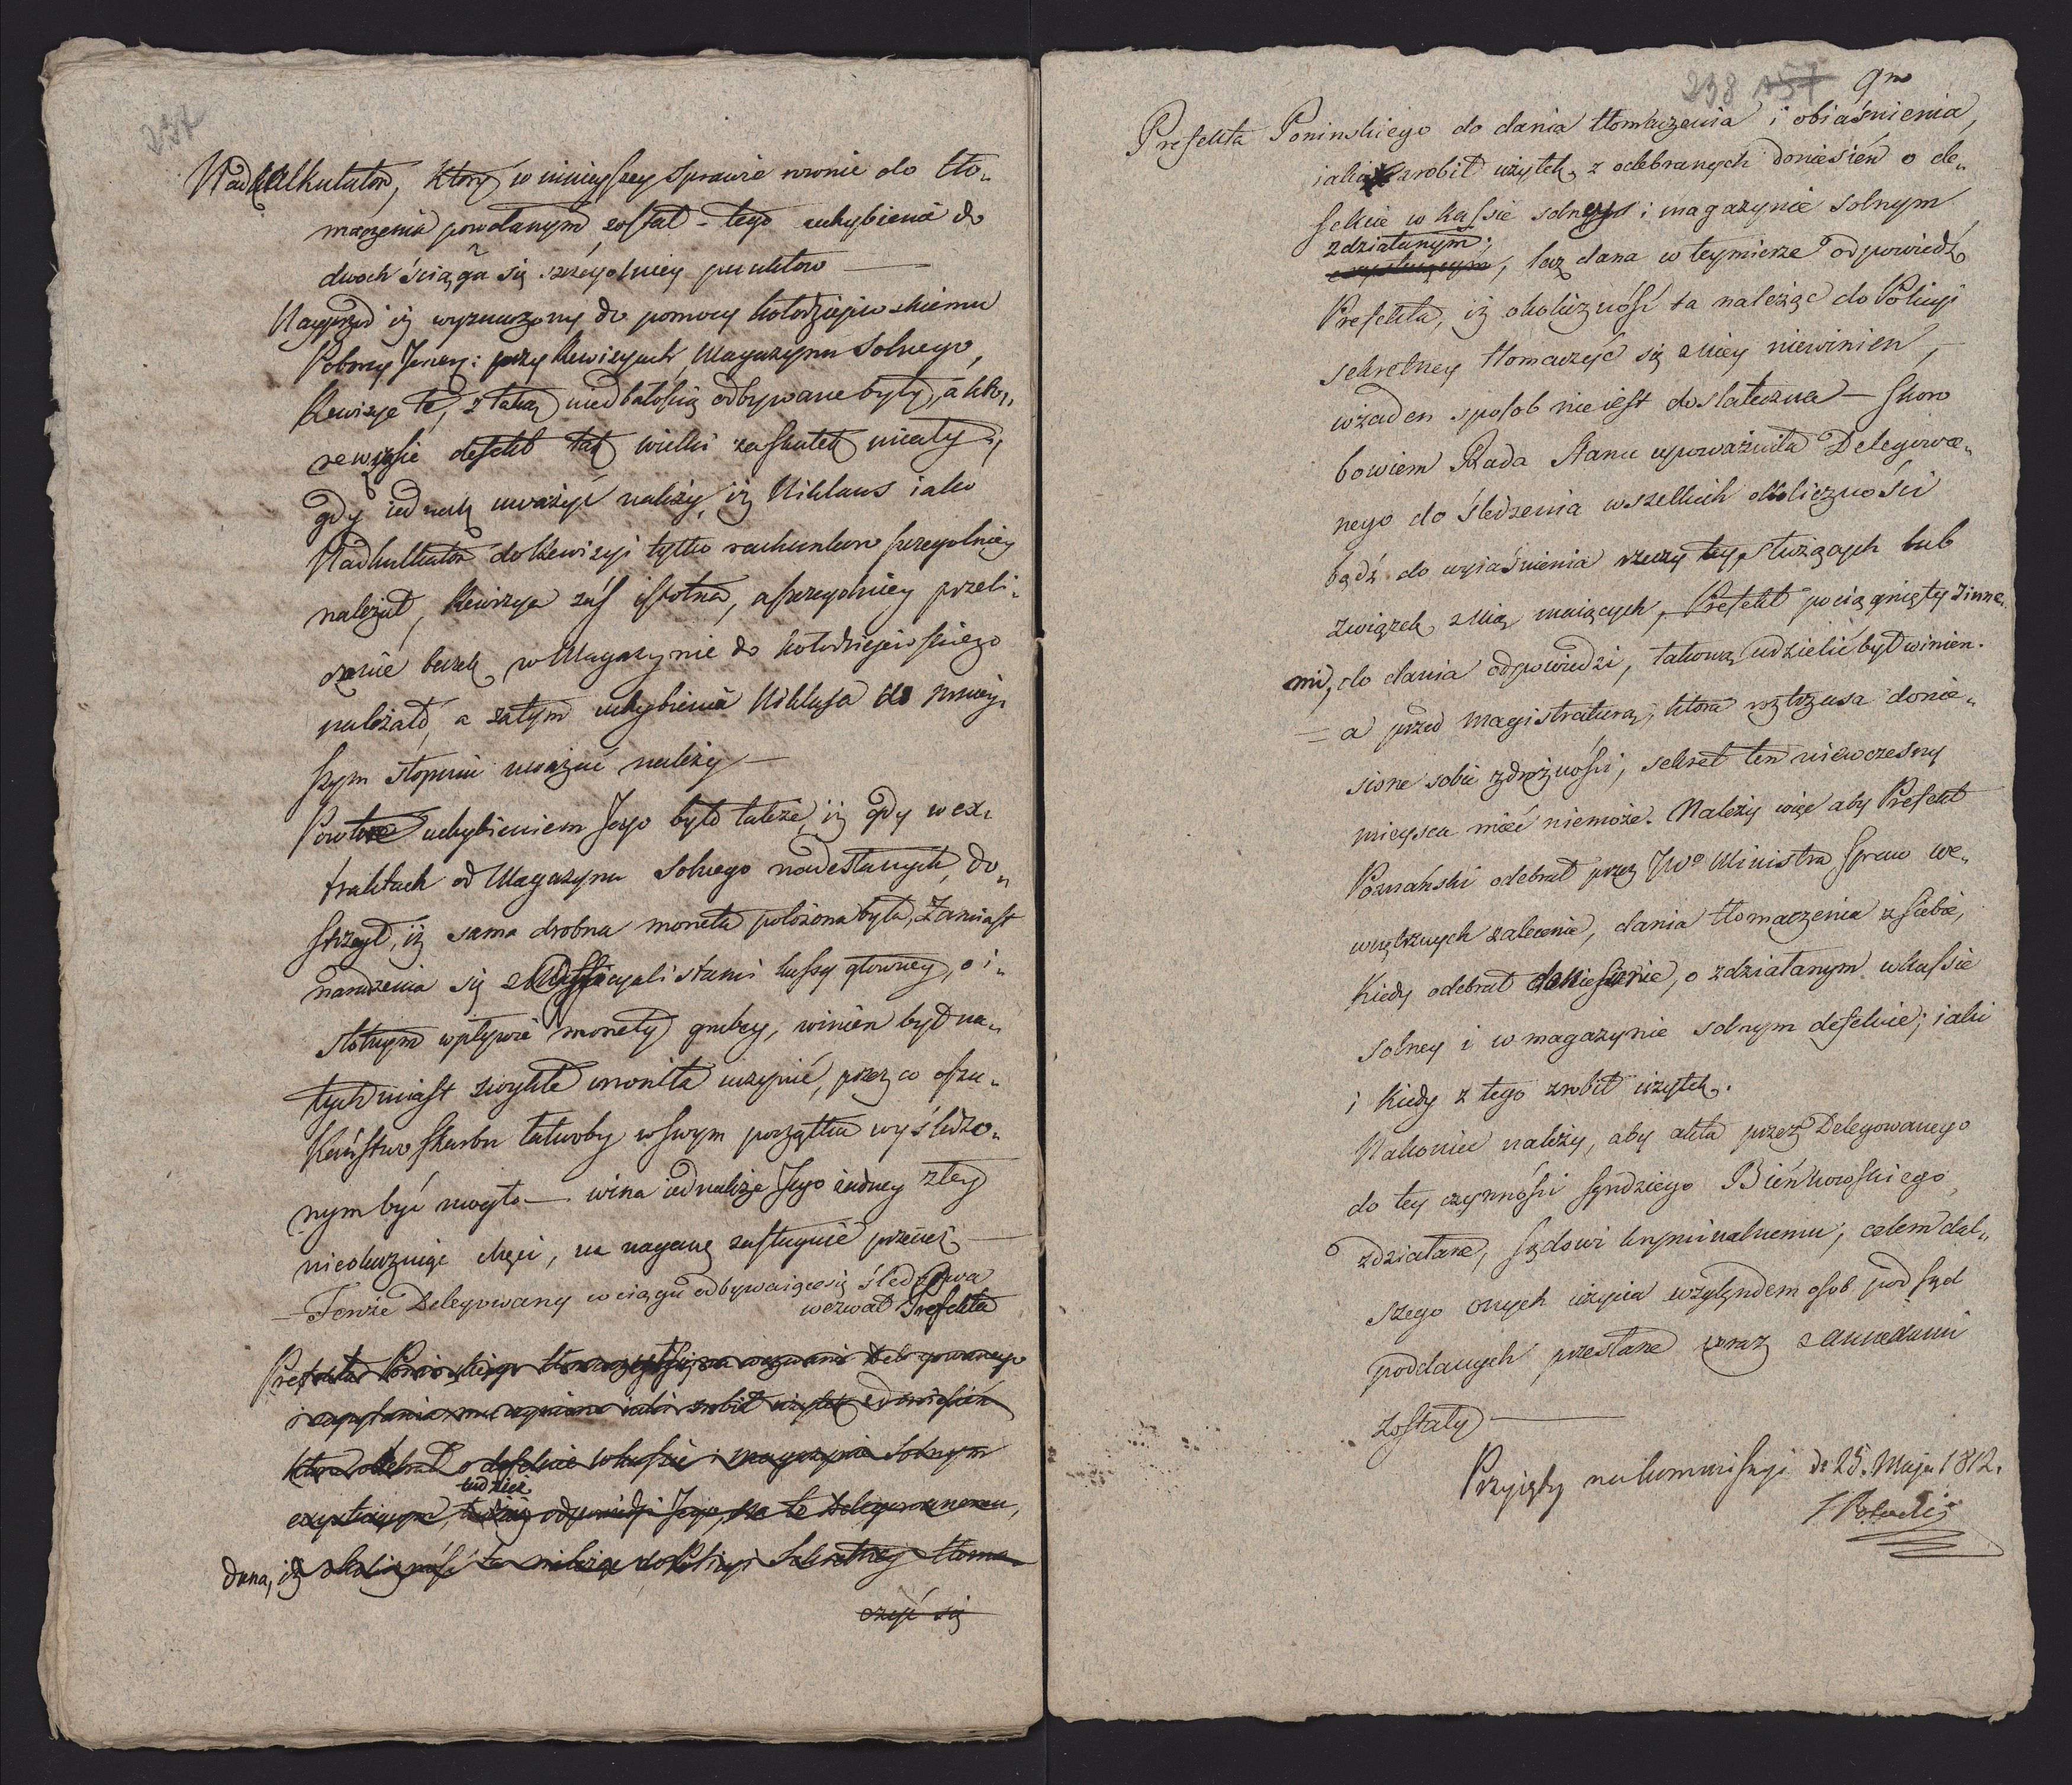 237
Nadkalkulator, który w ninieyszey sprawie rownie do tło„
maczenia powołanym został – tego uchybienia do
dwoch ściąga się szczegolniey punktow —
Nayprzod iż wyznaczony do pomocy Kołodzieiewskiemu
Poborcy Jener: przy Rewizyach Magazynu Solnego,
Rewizye te, z taką niedbałością odbywane były, a kto„
re w zysie defekt tak wielki za skutek miały;
gdy iednak uważyć należy, iż Niklaus iako
Nadkalkulator do Rewizyi tylko rachunkow szczegolniey
należał, Rewizya zaś istotna, a szczegolniey przeli„
czenie beczek w Magazynie do Kołodzieiewskiego
należało, a zatym uchybienia Niklasa do mniey„
szym stopniu uważać należy —
Powtore uchybieniem Jego było także, iż gdy w ex„
traktach od Magazynu Solnego nadesłanych, do„
strzegł, iż sama drobna moneta położona była, Zamiast
naradzenia się z Officyalistami kassy głowney, o i„
stotnym wpływie monety grubey, winien był na„
tychmiast zwykłe monita uczynić, przez co oszu„
kaństwo skarbu łatwoby w swym początku wyśledzo„
nym być mogło — wina iednakże Jego żadney złey
nieokazuiąc chęci, na naganę zasługuie przecież —
— Tenże Delegowany w ciągu odbywaiącego się śledztwa
wezwał Prefekta
Prefekta Ponińskiego tłomaczył się na wezwanie Delegowanego
i zapytania mu czynione iaki zrobił użytek z doniesień
które odebrał o defekcie w kassie i magazynie Solnym
tudzież
exystuiącym, odpowiedzi Jego, na to Delegowanemu,
dana, iż okoliczność ta należąc do Policyi Sekretney tłoma
czyć się
238 157 9no
Prefekta Poninskiego do dania tłomaczenia i obiaśnienia,
iaki zarobił użytek, z odebranych doniesień o de„
fekcie w kassie solney i magazynie solnym
zdziałanym;
exystuiącym, lecz dana w teymierze odpowiedź
Prefekta, iż okoliczność ta należąc do Policyi
sekretney tłomaczyć się z niey niewinien,
w żaden sposob nie iest dostateczna — Skoro
bowiem Rada Stanu upoważniła Delegowa„
nego do śledzenia wszelkich okoliczności
bądź do wyiaśnienia rzeczy tey służących lub
związek z nią maiących, Prefekt pociągnięty z inne„
mi, do dania odpowiedzi, takową udzielić był winien.
= a przed magistraturą, która roztrząsa donie„
sione sobie zdrożności, sekret ten niewczesny
mieysca mieć niemoże. Należy więc aby Prefekt
Poznański odebrał przez JWo Ministra Spraw we„
wnętrznych zalecenie, dania tłomaczenia z siebie,
kiedy odebrał doniesienie, o zdziałanym w kassie
solney i w magazynie solnym defekcie; iaki
i kiedy z tego zrobił użytek.
Nakoniec należy, aby akta przez Delegowanego
do tey czynności Sędziego Bieńkowskiego
zdziałane, Sądowi kryminalnemu, celem dal„
szego onych użycia względem osob pod sąd
poddanych przesłane wraz z annexami
zostały —
Przyięty na kommissyi d: 25. Maja 1812.